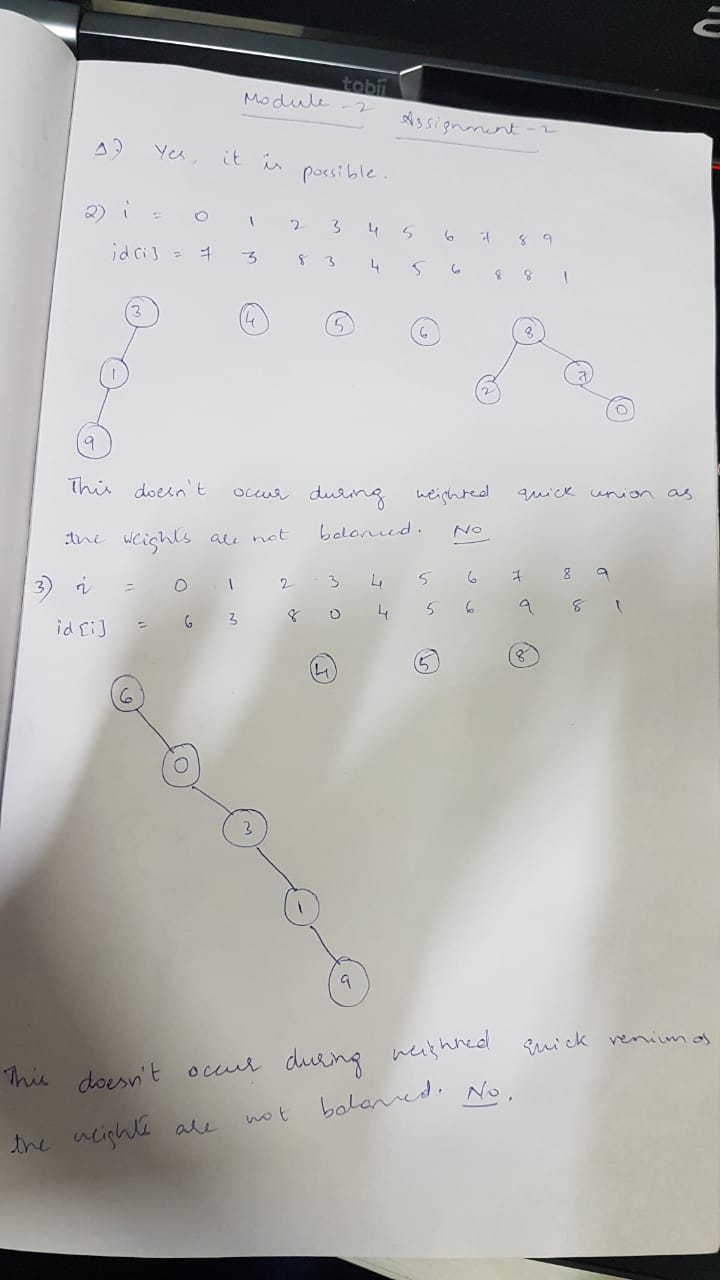 tobii
Module - 2 Assignment - 2
1) Yes, it is possible.
2) i = 0 1 2 3 4 5 6 7 8 9
id[i] = 7 3 8 3 4 5 6 8 8 1
3 4 5 6 8
1 2 7
0
9
This doesn't occur during weighted quick union as
the weights are not balanced. No
3) i = 0 1 2 3 4 5 6 7 8 9
id[i] = 6 3 8 0 4 5 6 9 8 1
4 5 8
6
0
3
1
9
This doesn't occur during weighted quick as
the weights are not balanced. No.